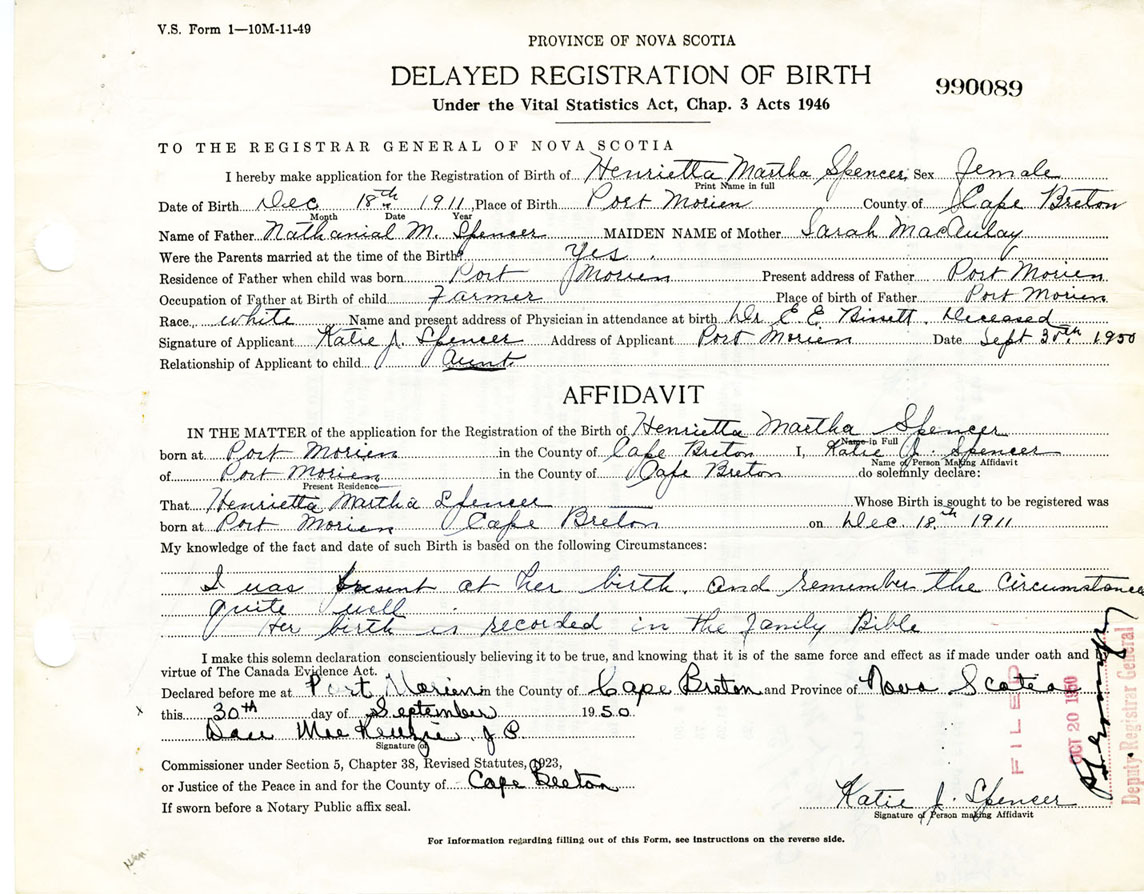 V.S. Form 1—10M-11-49
PROVINCE OF NOVA SCOTIA
DELAYED REGISTRATION OF BIRTH
990089
Under the Vital Statistics Act, Chap. 3 Acts 1946
TO THE REGISTRAR GENERAL OF NOVA SCOTIA
I hereby make application for the Registration of Birth of Henrietta Martha Spencer, Sex Female
Print Name in full
Date of Birth Dec 18th 1911, Place of Birth Port Morien County of Cape Breton
Month Date Year
Name of Father Nathanial M. Spencer MAIDEN NAME of Mother Sarah MacAulay
Were the Parents married at the time of the Birth? Yes.
Residence of Father when child was born Port Morien Present address of Father Port Morien
Occupation of Father at Birth of child Farmer Place of birth of Father Port Morien
Race white Name and present address of Physician in attendance at birth Dr E E Bissett. Deceased
Signature of Applicant Katie J. Spencer Address of Applicant Port Morien Date Sept 30th, 1950
Relationship of Applicant to child Aunt
AFFIDAVIT
IN THE MATTER of the application for the Registration of the Birth of Henrietta Martha Spencer
Name in Full
born at Port Morien in the County of Cape Breton I, Katie J. Spencer
Name of Person Making Affidavit
of Port Morien in the County of Cape Breton do solemnly declare:
Present Residence
That Henrietta Martha Spencer Whose Birth is sought to be registered was
born at Port Morien Cape Breton on Dec. 18th 1911
My knowledge of the fact and date of such Birth is based on the following Circumstances:
I was present at her birth. and remember the Circumstance
quite well
Her birth is recorded in the family Bible
I make this solemn declaration conscientiously believing it to be true, and knowing that it is of the same force and effect as if made under oath and by
virtue of The Canada Evidence Act.
Declared before me at Port Morien in the County of Cape Breton and Province of Nova Scotia
this 30th day of September 1950
Dan MacKenzie J P
Signature of
Commissioner under Section 5, Chapter 38, Revised Statutes, 1923,
or Justice of the Peace in and for the County of Cape Breton
If sworn before a Notary Public affix seal.
Katie J. Spencer
Signature of Person making Affidavit
FILED
OCT 20 1950
Deputy Registrar General
For Information regarding filling out of this Form, see instructions on the reverse side.